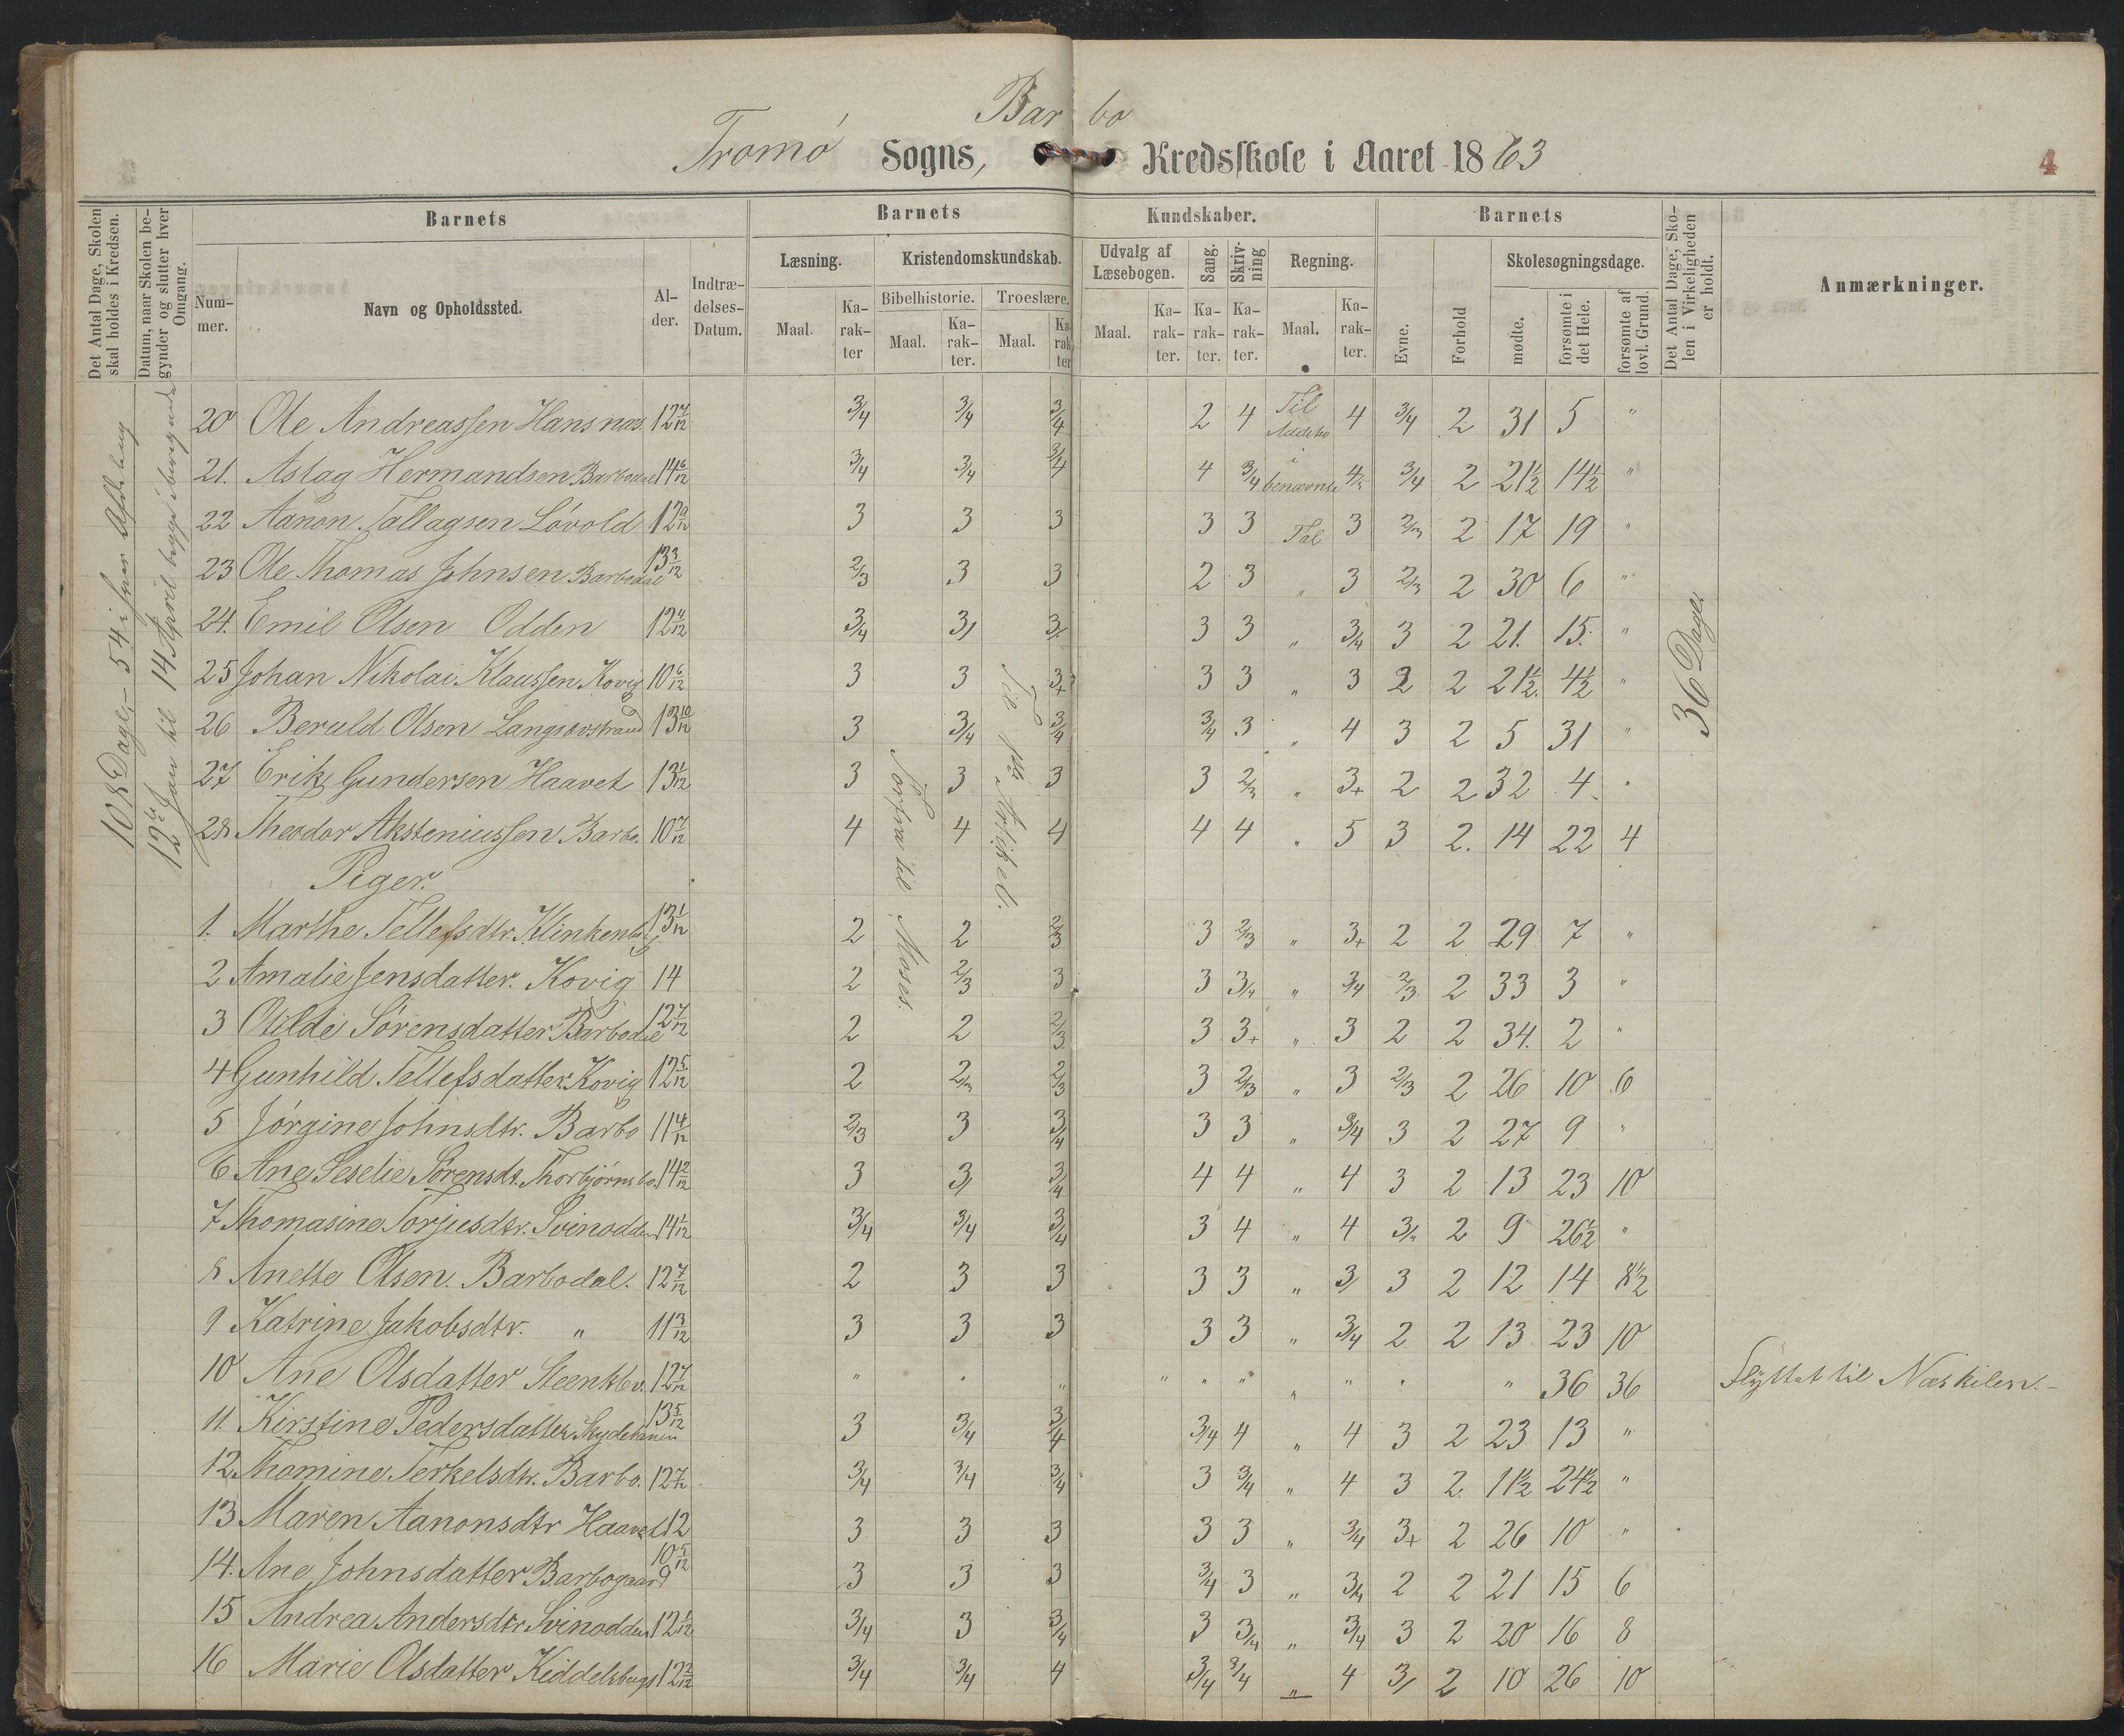 Barbo
Tromø Sogns, Kredsskole i Aaret 1863 4
Det Antal Dage, Skolen skal holdes i Kredsen.
Datum, naar Skolen begynder og slutter hver Omgang.
Barnets
Nummer.
Navn og Opholdssted.
Alder.
Indtrædelses-Datum.
Barnets Kundskaber.
Læsning.
Maal.
Karakter
Kristendomskundskab.
Bibelhistorie.
Maal.
Karakter.
Troeslære.
Maal.
Karakter
Udvalg af Læsebogen.
Maal.
Karakter.
Sang.
Karakter.
Skrivning
Karakter.
Regning.
Maal.
Karakter.
Barnets
Evne.
Forhold
Skolesøgningsdage.
mødte.
forsømte i det Hele.
forsømte af lovl. Grund.
Det Antal Dage, Skolen i Virkeligheden er holdt.
Anmærkninger.
108 Dage, – 54 i hver Afdeling
12te Jan til 14 April begge iberegnede
Torfra til Moses.
Til 3die Artikel.
36 Dage.
20 Ole Andreassen Hansnæs. 12 7/12 3/4 3/4 3/4 2 4 Til Addition 4 3/4 2 31 5 "
21. Aslag Hermandsen Barbodal 14 6/12 3/4 3/4 3/4 4 3/4 i benævnte 4/5 3/4 2 21 1/2 14 1/2 "
22 Aanon Tallagsen Lóvold 12 9/12 3 3 3 3 3 Tal 3 2/3 2 17 19 "
23 Ole Thomas Johnsen Barbodal 13 3/12 2/3 3 3 2 3 " 3 2/3 2 30 6 "
24. Emil Olsen Odden 12 4/12 3/4 3/ 3/ 3 3 " 3/4 3 2 21. 15. "
25 Johan Nikolai Klaussen Kovig 10 6/12 3 3 3+ 3 3 " 3 2 2 21 1/2. 4 1/2 "
26 Beruld Olsen Langsævstrand 13 10/12 3 3/4 3/4 3/4 3 " 4 3 2 5 31 "
27 Erik Gundersen Haavet 13 1/12 3 3 3 3 2/3 " 3+ 2 2 32 4. "
28 Theodor Aksteniussen Barbo. 10 7/12 4 4 4 4 4 " 5 3 2. 14 22 4
Piger.
1. Marthe Tellefsdtr. Klinkenberg 13 1/12 2 2 2/3 3 2/3 " 3+ 2 2 29 7 "
2 Amalie Jensdatter. Kovig 14 2 2/3 3 3 3/4 " 3/4 2/3 2 33 3 "
3 Otilde Sórensdatter Barbodal 12 7/12 2 2 2/3 3 3+ " 3 2 2 34. 2 "
4 Gunhild Tellefsdatter. Kovig 12 5/12 2 2/3 2/3 3 2/3 " 3 2/3 2 26 10 6
5 Jórgine Johnsdtr. Barbo 11 4/12 2/3 3 3/4 3 3 " 3/4 3 2 27 9 "
6 Ane Seselie Sórensdt. Thorbjørnsbo. 14 2/12 3 3/ 3/4 4 4 " 4 3 2 13 23 10
7 Thomasine Torjusdtr. Svinodden 14 1/12 3/4 3/4 3/4 3 4 " 4 3/4 2 9 26 1/2 "
8 Anette Olsen. Barbodal. 12 7/12 2 3 3 3 3 " 3/ 3 2 12 14 8 1/2
9 Katrine Jakobsdtr. " 11 3/12 3 3 3 3 3 " 3/4 2 2 13 23 10
10 Ane Olsdatter Steenklev. 12 7/12 " " " " " " " " " " 36 36 Flyttet til Næskilen. –
11. Kirstine Pedersdatter Skydebanen 13 5/12 3 3/4 3/4 3/4 4 " 4 3 2 23 13 "
12. Thomine Terkelsdtr. Barbo. 12 7/12 3/4 3/4 3/4 3 3/4 " 4 3 2. 11 1/2 24 1/2 "
13 Maren Aanonsdtr Haavet 12 3 3 3 3 3 " 3/4 3+ 2 26 10 "
14. Ane Johnsdatter Barbogaard 10 5/12 3 3 3 3/4 3 " 3/4 2 2 21 15 6
15 Andrea Andersdtr Svinodden 12 1/12 3/4 3 3/4 3 3/4 " 3/4 3 2 20 16 8
16 Marie Olsdatter Kiddelsberg 12 2/12 3/4 3/4 4 3/4 3/4 " 4 3/ 2 10 26 10